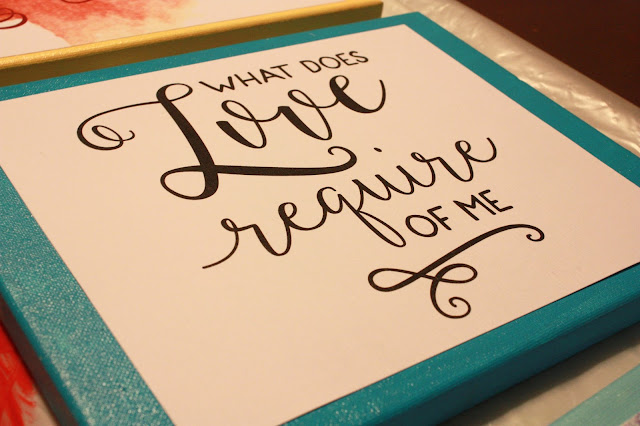 WHAT DOES
Love
require
OF ME